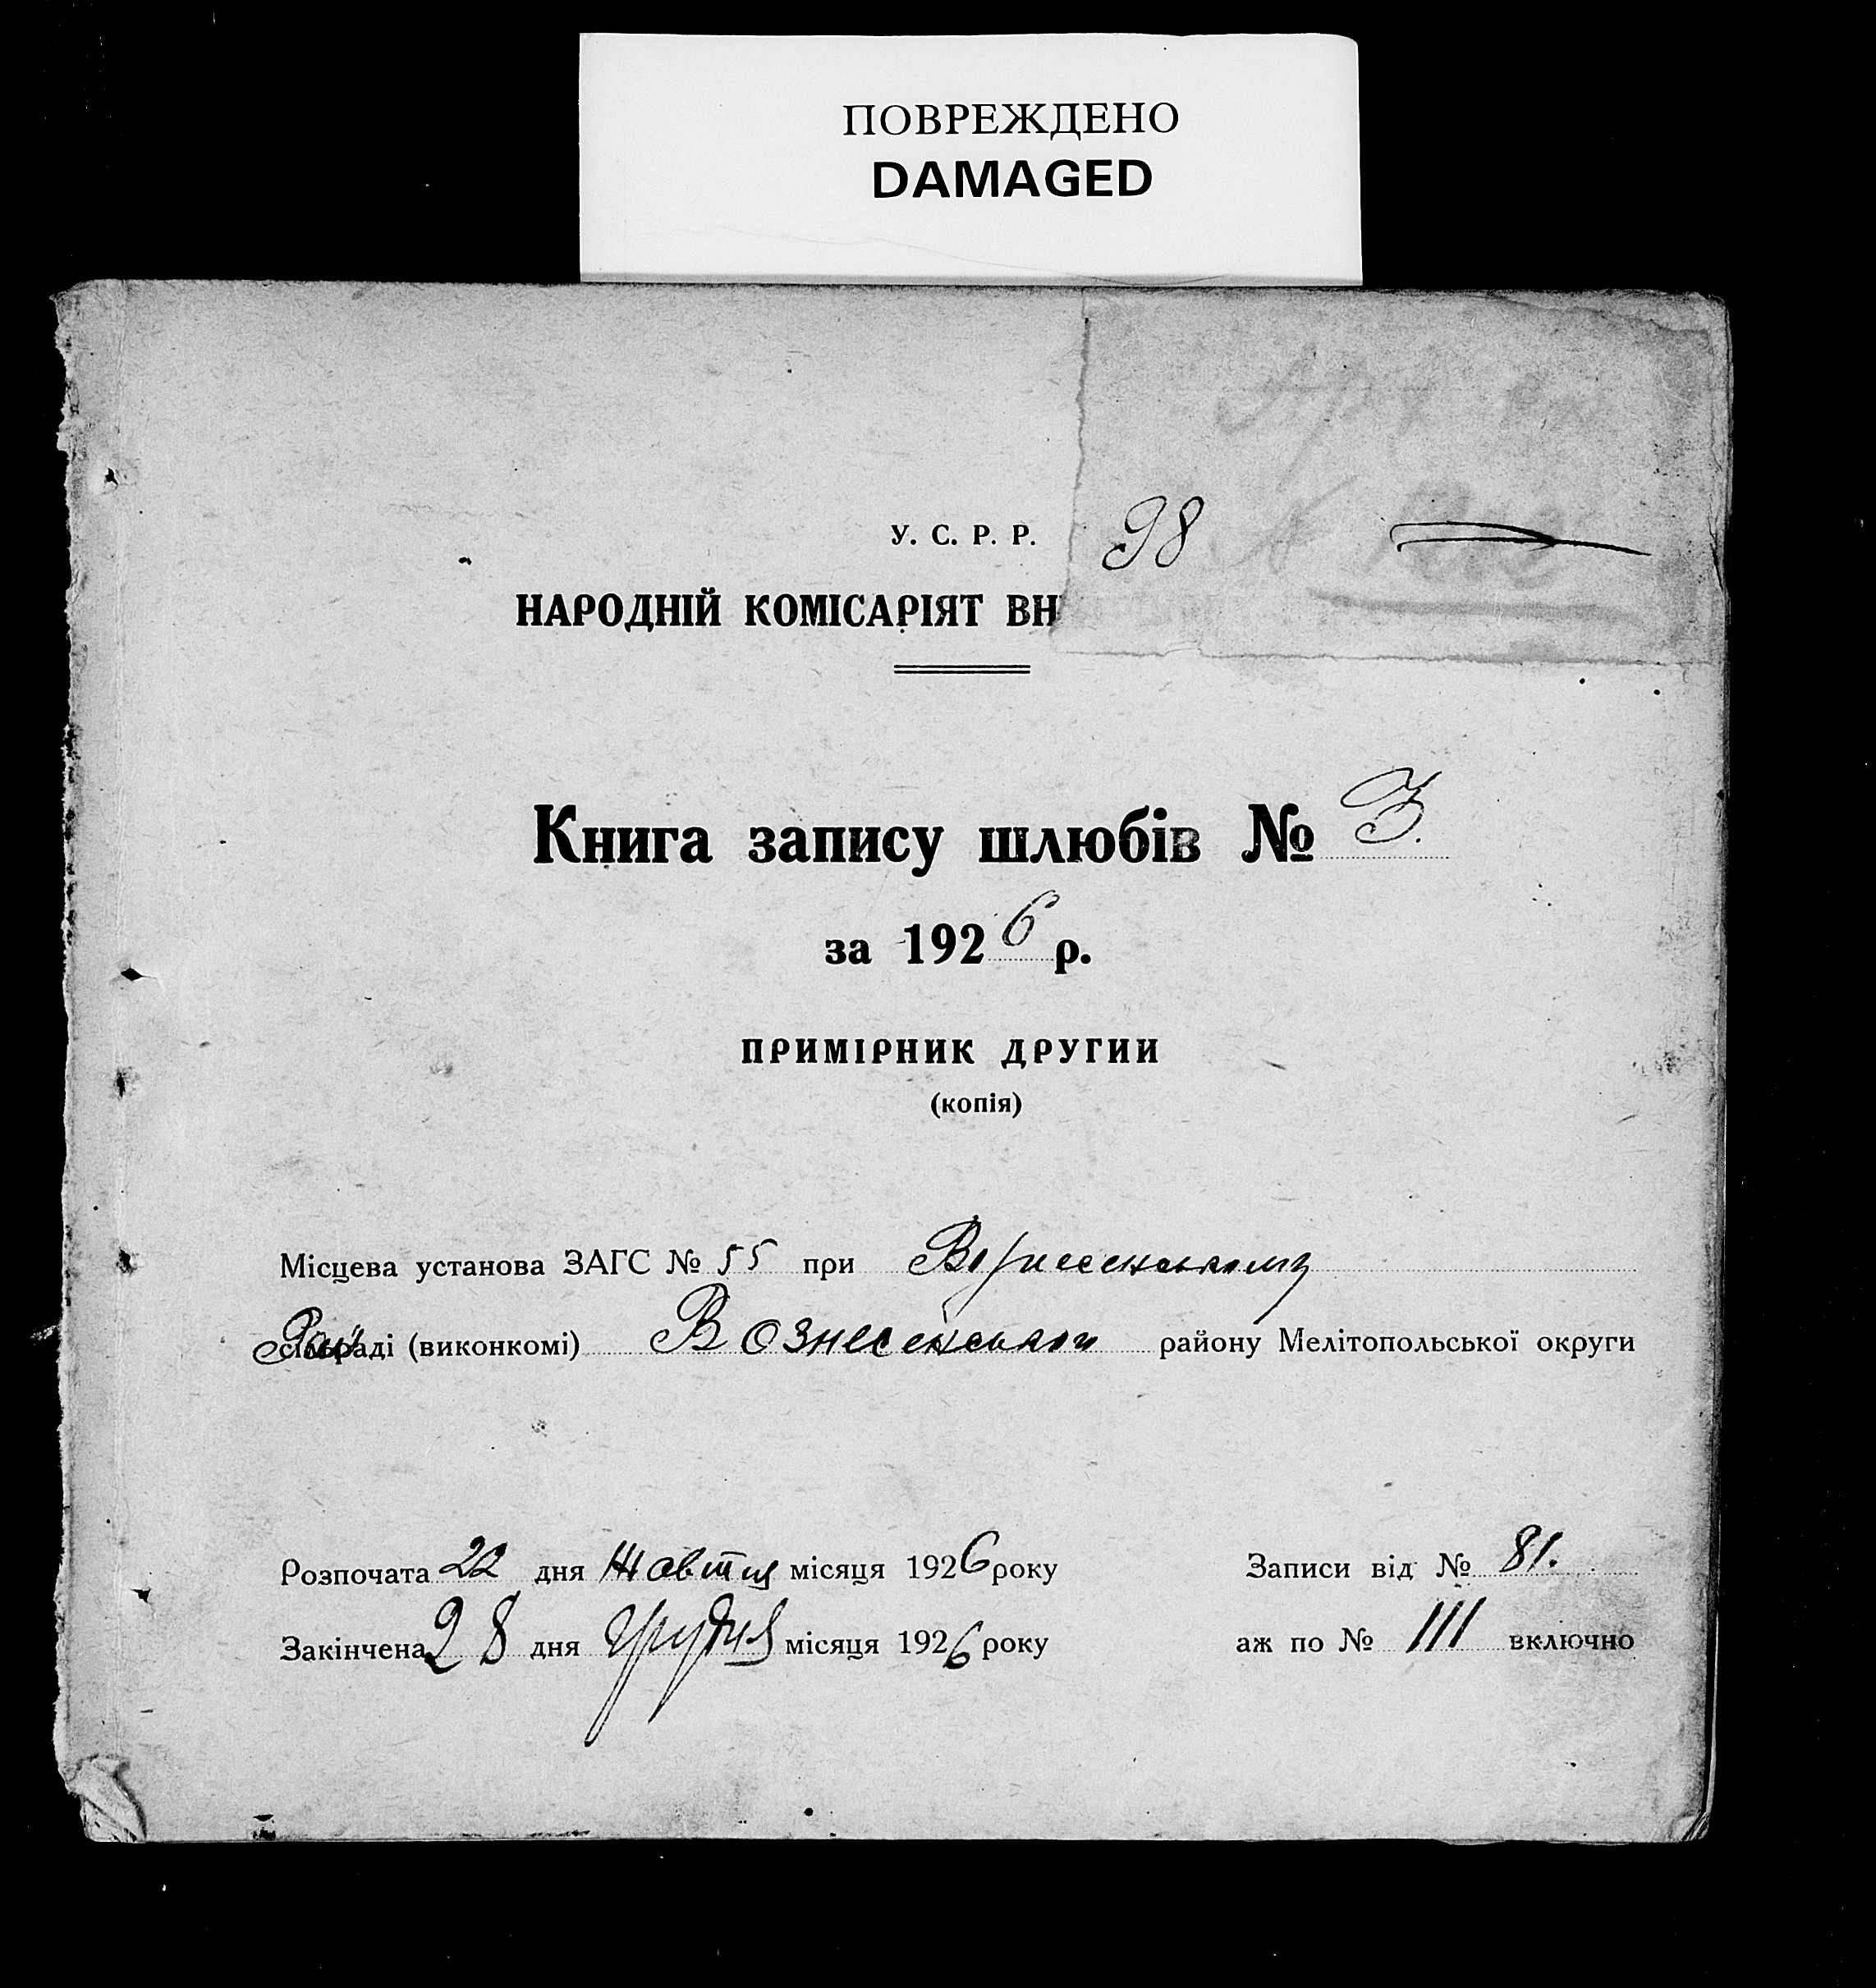 ПОВРЕЖДЕНО
DAMAGED
У. С. Р. Р.
98
НАРОДНІЙ КОМІСАРІЯТ ВН
Книга запису шлюбів № 3.
за 1926 р.
ПРИМІРНИК ДРУГИИ
(копія)
Місцева установа ЗАГС № 55 при Вознесенському
Рай сільраді (виконкомі) Вознесенського району Мелітопольської округи
Розпочата 22 дня Жовтня місяця 1926 року Записи від № 81.
Закінчена 28 дня грудня місяця 1926 року аж по № 111 включно